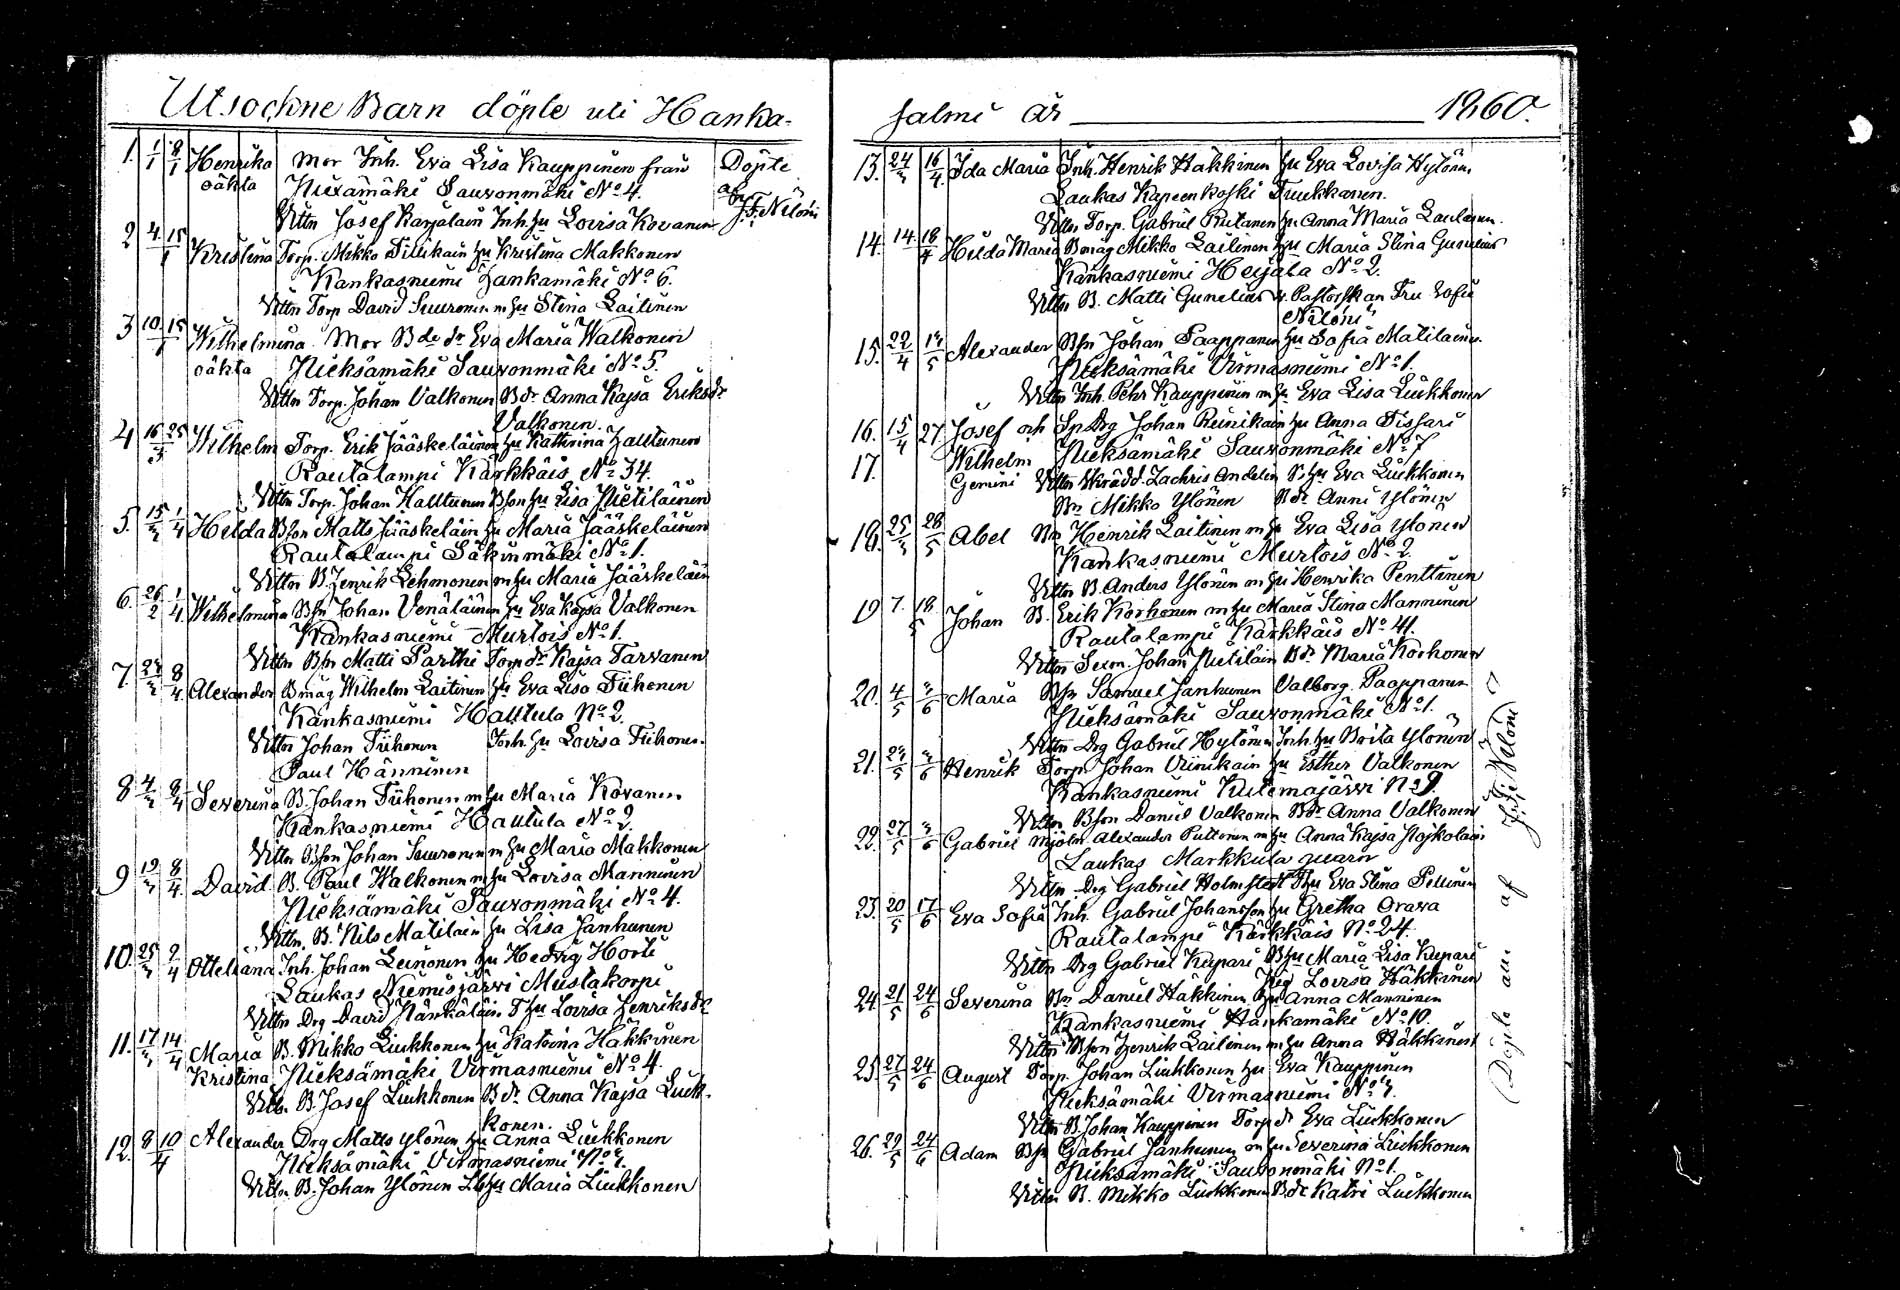 Utsockne Barn döpte uti Hanka-
1. 1/1 8/1 Henrika Mor Inh. Eva Lisa Kauppinen från Döpte
oäkta Niexämäki Sauvonmäki No 4. af
Vittn Josef Karjalain Inh. hu Lovisa Kovanen J. F. Nilóni
2 4/1 15/1 Kristina Torp. Mikko Tillikain hu Kristina Makkonen
Kankasniemi Hankamäki No 6.
Vittn Torp David Suuronen m hu Stina Laitinen
3 10/1 15/1 Wilhelmina Mor B de dr Eva Maria Walkonen
oäkta Nieksämäki Sauvonmäki No 5.
Vittn Torp. Johan Valkonen B dr Anna Kajsa Eriksdr
Valkonen.
4 16/ 25/ Wilhelm Torp. Erik Jääskeläinen hu Kathrina Halttunen
Rautalampi Kärkkäis No 34.
Vittn Torp. Johan Halttunen Bson hu Lisa Pietiläinen
5. 15/3 1/4 Hilda Bson Matts Jääskeläin hu Maria Jääskeläinen
Rautalampi Säkinmäki No 1.
Vittn B. Henrik Lehmonen m hu Maria Jääskeläin
6. 26/2 1/4 Wilhelmina Bsn Johan Venäläinen hu Eva Kajsa Valkonen
Kankasniemi Murtois No 1.
Vittn Bsn Matti Parthi Torp dr Kajsa Tarvanen
7 8/4 Alexander Bmåg Wilhelm Laitinen hu Eva Lisa Tiihonen
Kankasniemi Halttula No 2.
Vittn Johan Tiihonen Inh. hu Lovisa Tiihonen.
Paul Hänninen
8 4/3 8/4 Severina B. Johan Tiihonen m hu Maria Kovanen
Kankasniemi Halttula No 2
Vittn Bson Johan Suuronen m hu Maria Makkonen
9 19/3 8/4 David B. Paul Walkonen m hu Lovisa Manninen
Nieksämäki Sauvonmäki No 4.
Vittn. B. Nils Matilain hu Lisa Janhunen
10. 25/3 2/4 Otteliana Inh. Johan Leinonen hu Hedvig Horti
Laukas Niemisjärvi Mustakorpi
Vittn Drg David Hänkäläin T hu Lovisa Henriksdr
11. 17/3 14/4 Maria B. Mikko Liukkonen hu Katrina Häkkinen
Kristina Nieksämäki Virmasniemi No 4.
Vittn. B. Josef Liukkonen B dr Anna Kajsa Liuk-
konen.
12. 8 10/4 Alexander Drg Matts Ylönen hu Anna Liukkonen
Nieksämäki Virmasniemi No
Vittn B. Johan Ylönen hu Maria Liukkonen
salmi år 1860.
13. 24/3 16/4 Ida Maria Inh. Henrik Häkkinen hu Eva Lovisa Hytönen
Laukas Kapeenkoski Truukkanen.
Vittn Torp. Gabriel Rutanen hu Anna Maria Lautanen.
14. 14 18/4 Hilda Maria Bmåg Mikko Laitinen hu Maria Stina Gunelius
Kankasniemi Heijala No 2.
Vittn B. Matti Gunelius v. Pastorskan Fru Sofie
Niloni
15. 22/4 /5 Alexander Bsn Johan Paappanen hu Sofia Matilainen
Nieksämäki Virmasniemi No 1.
Vittn Inh. Pehr Kauppinen m hu Eva Lisa Liukkonen
16. 15/4 27 Josef och Sp Drg Johan Reinikain hu Anna Tissari
17. Wilhelm Nieksämäki Sauvonmäki No 7
Gemini Vittn Skrädd. Zachris Andelin S hu Eva Liukkonen
Bn Mikko Ylönen B dr Anni Ylönen
18. 25/3 28/5 Abel Bn Henrik Laitinen m hu Eva Lisa Ylönen
Kankasniemi Murtois No 2
Vittn B. Anders Ylönen m hu Henrika Penttinen
19 7. 18/5 Johan B. Erik Korhonen m hu Maria Stina Manninen
Rautalampi Kärkkäis No 41.
Vittn Sexm. Johan Pietiläin B dr Maria Korhonen
20. 4/5 3/6 Maria Bsn Samuel Janhunen Valborg Paappanen
Nieksämäki Sauvonmäki No 1.
Vittn Drg Gabriel Hytönen Inh. hu Brita Ylönen
21. /5 3/6 Henrik Torp. Johan Viinikain hu Esther Valkonen
Kankasniemi Kutemajärvi No 9.
Vittn Bson Daniel Valkonen B dr Anna Valkonen
22. 27/5 3/6 Gabriel Mjöln Alexander Puttonen m hu Anna Kajsa
Laukas Markkula quarn
Vittn Drg Gabriel Holmstedt T hu Eva Stina Pellinen
23. 20/5 17/6 Eva Sofia Inh. Gabriel Johansson hu Gretha Orava
Rautalampi Kärkkäis No 24.
Vittn Drg Gabriel Kupari B hu Maria Lisa Kupari
Pig Lovisa Häkkinen
24. 21/5 24/6 Severina Bn Daniel Häkkinen hu Anna Manninen
Kankasniemi Hankamäki No 10.
Vittn Bson Henrik Laitinen m hu Anna Häkkinen
25. 27/5 24/6 August Torp. Johan Liukkonen hu Eva Kauppinen
Nieksämäki Virmasniemi No
Vittn B. Johan Kauppinen Torp dr Eva Liukkonen
26. 29/5 24/6 Adam Bsn Gabriel Janhunen m hu Severina Liukkonen
Nieksämäki Sauvonmäki No 1.
Vittn B. Mikko Liukkonen B dr Katri Liukkonen
(Döpte alla af J. F. Nilóni)